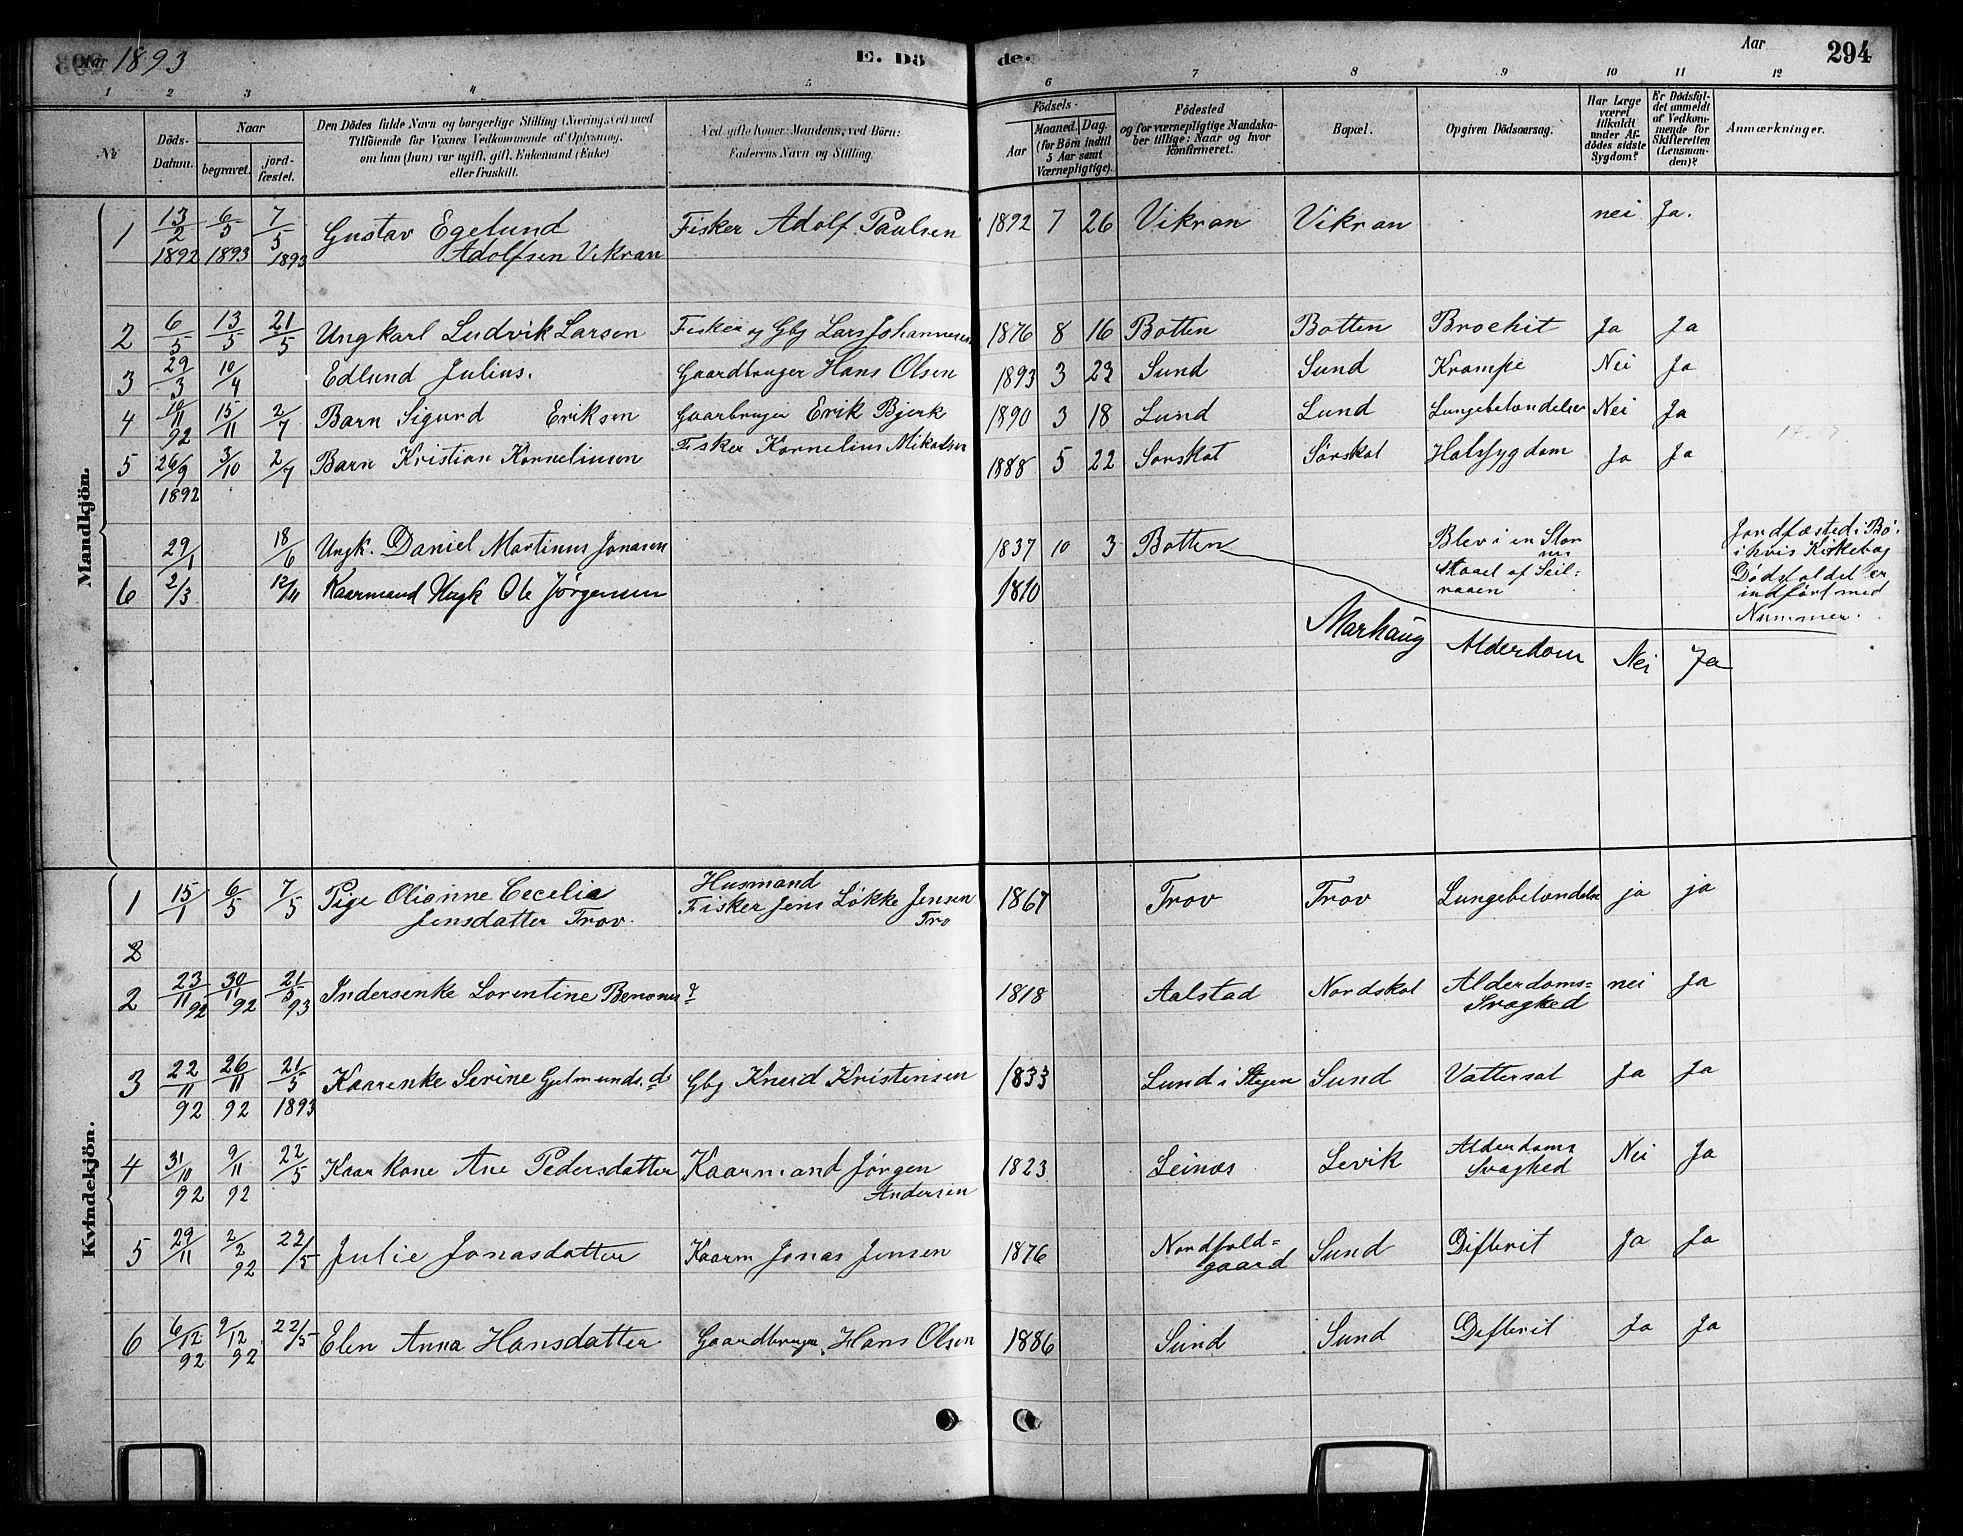 Aar 1893
E. Dö
de.
Aar
294
1 2 3 4 5 6 7 8 9 10 11 12
№
Döds-
Datum.
Naar
begravet.
jord-
fæstet.
Den Dödes fulde Navn og borgerlige Stilling (Næringsvei) med
Tilföiende for Voxnes Vedkommende af Oplysning,
om han (hun) var ugift, gift, Enkemand (Enke)
eller fraskilt.
Ved gifte Koner: Mandens, ved Börn:
Faderens Navn og Stilling.
Födsels-
Aar
Maaned. Dag.
(for Börn indtil
5 Aar samt
Værnepligtige).
Födested
og for værnepligtige Mandska-
ber tillige: Naar og hvor
konfirmeret.
Bopæl.
Opgiven Dödsaarsag.
Har Læge
været
tilkaldt
under Af-
dödes sidste
Sygdom?
Er Dödsfal-
det anmeldt
af Vedkom-
mende for
Skifteretten
(Lensman-
den)?
Anmærkninger.
Mandkjön.
1 13/2 6/5 7/5 Gustav Egelund Fisker Adolf Paulsen 1892 7 26 Vikran Vikran nei Ja.
1892 1893 1893 Adolfsen Vikran
2 6/5 13/5 21/5 Ungkarl Ludvik Larsen Fisker og Gbg Lars Johannesen 1876 8 16 Botten Botten Brochit Ja Ja
3 29/3 10/4 Edlund Julius. Gaardbruger Hans Olsen 1893 3 23 Sund Sund Krampe Nei Ja
4 10/11 15/11 2/7 Barn Sigurd Eriksen Gaarbruger Erik Bjerk 1890 3 18 Lund Lund Lungebetændelse Nei Ja
92
5 26/9 3/10 2/7 Barn Kristian Kornelius​en Fisker Kornelius Mikalsen 1888 5 22 Sorskot Sörskot Halssygdom Ja Ja
1892
29/1 18/6 Ungk. Daniel Martinus Jonasen 1837 10 3 Botten Blev i en Stor
Jordfæsted i Bö
i hvis Kirkebog
Dödsfaldet er
indfört med
Nummer.
6 2/3 12/11 Kaarmand Ungk Ole Jørgensen 1810
Marhaug Alderdom Nei Ja
Kvindekjön.
1 15/1 6/5 7/5 Pige Olianne Cecelia Husmand
Jensdatter Trov. Fisker Jens Løkke Jensen 1867 Trov Trov Lungebetændelse ja ja
Tro
2
2 23/11 30/11 21/5 Indersenke Lorentine Benons d 1818 Aalstad Nordskot Alderdoms- nei Ja
92 92 93 Svaghed
3 22/11 26/11 21/5 Kaarenke Serine Gjelmunds.d Gbg Knerd Kristensen 1833 Lund i Stegen Sund Vattersot Ja Ja
92 92 1893
4 31/10 9/11 22/5 Kaar Kone Ane Pedersdatter Kaarmand Jørgen 1823 Leinæs Levik Alderdoms Nei Ja
92 92 Andersen Svaghed
5 29/11 2/2 22/5 Julie Jonasdatter Kaarm Jonas Jensen 1876 Nordfold- Sund Difterit Ja Ja
92 gaard
6 6/12 9/12 22/5 Elen Anna Hansdatter Gaardbruger Hans Olsen 1886 Sund Sund Difterit Ja Ja
92 92